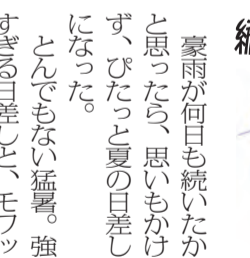 豪雨が何日も続いたか
と思ったら、思いもかけ
ず、ぴたっと夏の日差し
になった。
とんでもない猛暑。強
すぎる日差しと、モワッ